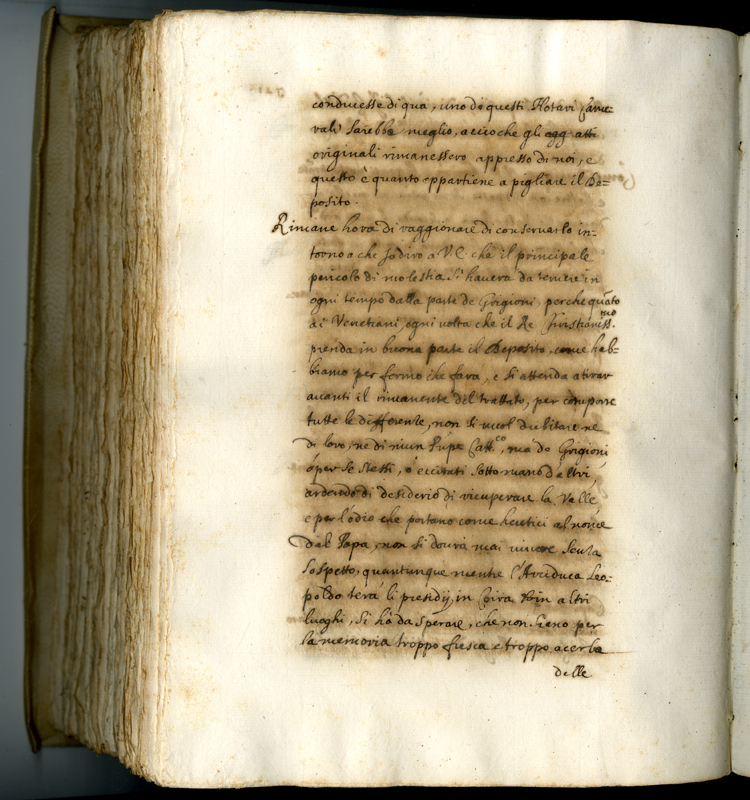 conducesse di qua, uno di questi Notari Came-
rali sarebbe meglio, accioche gli agg atti
originali rimanessero appresso di noi, e
questo è quanto appartiene a pigliare il De-
posito.
Rimane hora di raggionare di conservarlo in-
torno a che io dirò a V.E. che il principale
pericolo di molestia si haverà da temere in
ogni tempo dalla parte de Grigioni, perche quāto
a i Venetiani, ogni volta che il Re Christianiss.mo
prenda in buona parte il Deposito, come hab-
biamo per fermo che fara, e si attenda a tirar
avanti il rimanente del trattato, per comporre
tutte le differenze, non si vuol dubitare ne
di loro, ne di niun Prīpe Catt.co, ma da Grigioni
ó per se stessi, o eccitati sotto mano d'altri,
ardendo di desiderio di ricuperare la Valle
e per l'odio che portano come heretici al nome
del Papa, non si dovrà mai vivere senza
sospetto, quantunque mentre l'Arciduca Leo-
poldo terá li presidij in Coira & in altri
luoghi, si hà da sperare, che non sieno per
la memoria troppo fresca e troppo acerba
delle